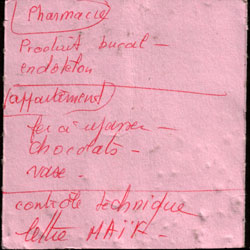 Pharmacie
Produit bucal -
endokton
appartement
fer à repasser -
chocolats -
vase -
contrôle technique
lettre MAIF -